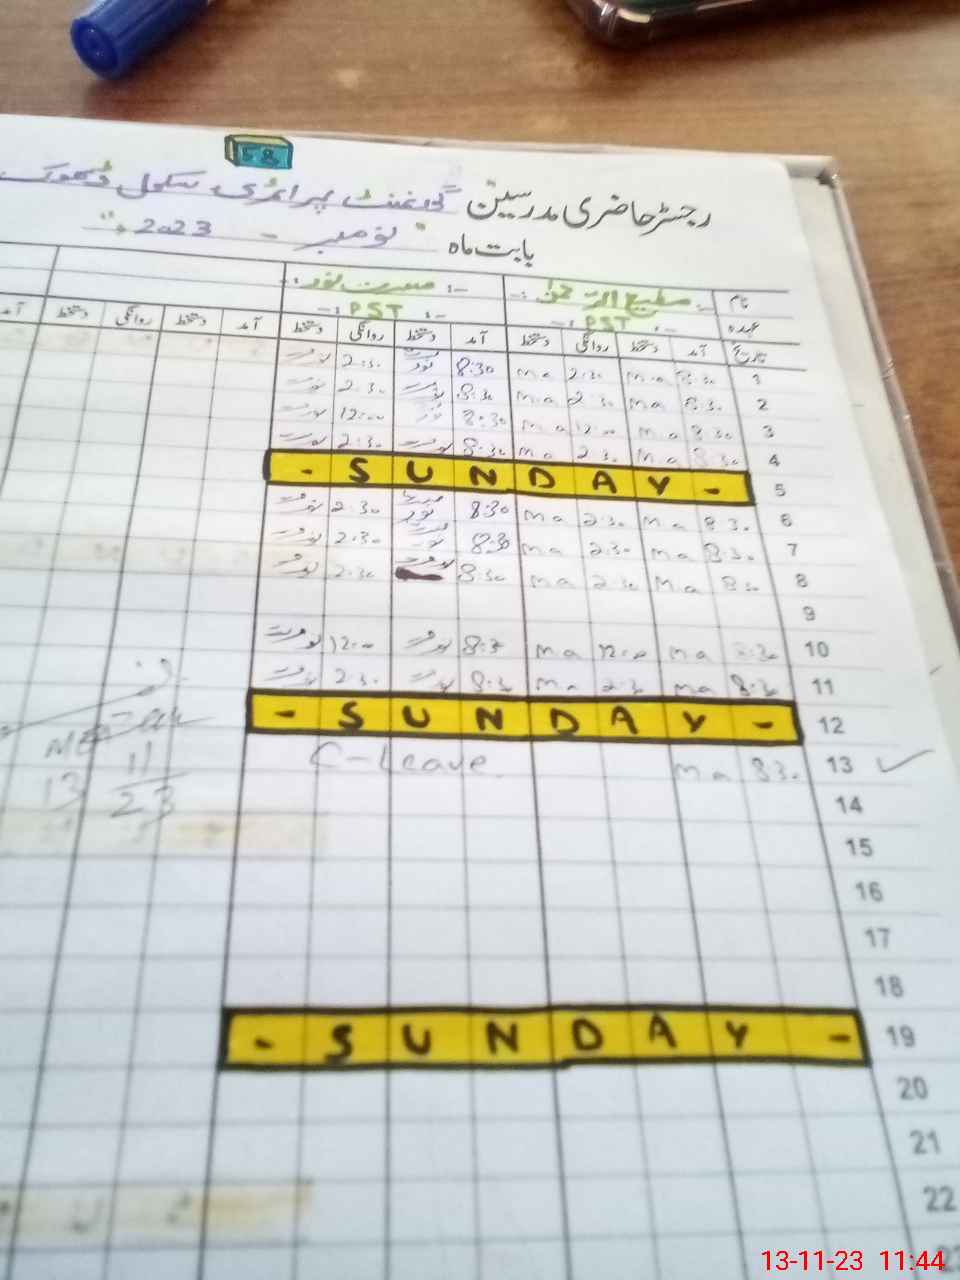 58
رجسٹر حاضری مدرسین گورنمنٹ پرائمری سکول ڈھوک
بابت ماہ نومبر - 2023
نام مطیع الرحمن
عہدہ PST PST
تاریخ آمد دستخط روانگی دستخط آمد دستخط روانگی دستخط آمد دستخط روانگی دستخط آمد
1 8:30 m a 2:30 m a 8:30 نور 2:30
2 8:30 m a 2:30 m a 8:30 2:30
3 8:30 m a 12:00 m a 8:30 12:00
4 8:30 m a 2:30 m a 8:30 2:30
5 - SUNDAY -
6 8:30 m a 2:30 m a 8:30 نور 2:30
7 8:30 m a 2:30 m a 8:30 2:30
8 8:30 m a 2:30 m a 8:30 2:30
9
10 m a 12:00 m a 8:3 12:00
11 8:30 m a 2:30 m a 8:30 2:30
12 - SUNDAY -
13 8:30 m a C-Leave
13 11 23
14
15
16
17
18
19 - SUNDAY -
20
21
22
23
13-11-23 11:44